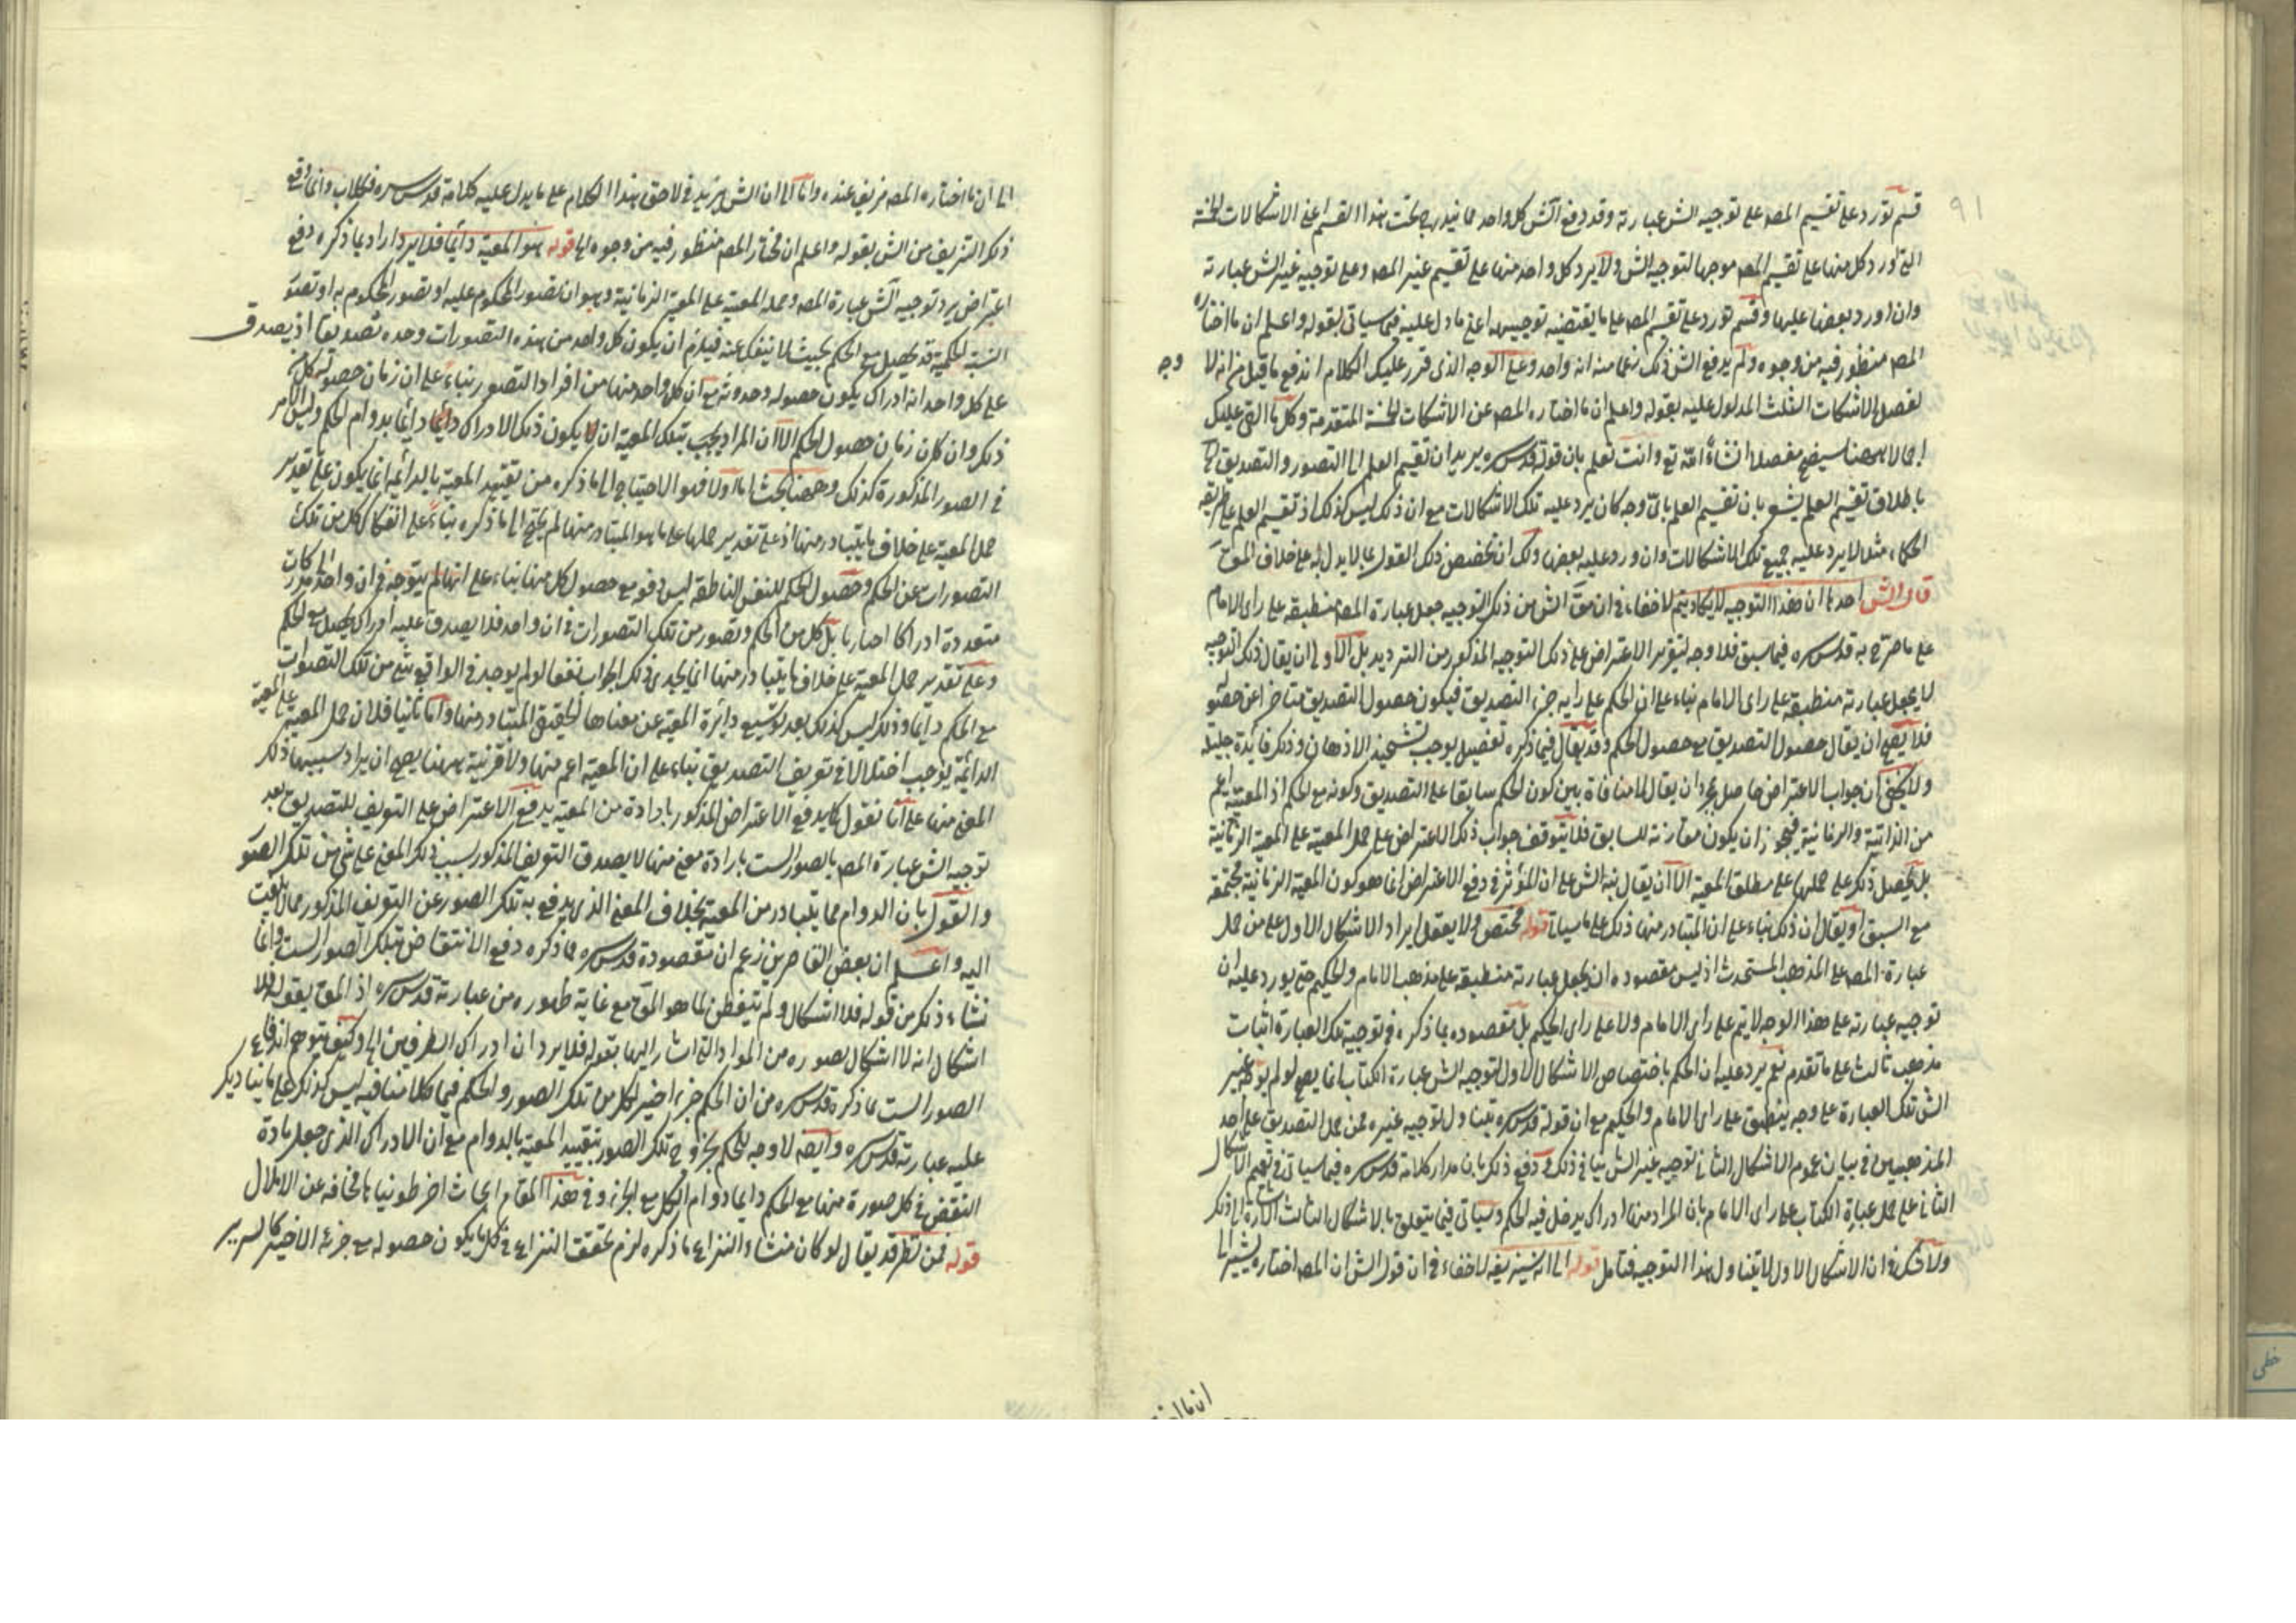 ٩١
قسم تورد على تقسيم المصه على توجيه الش عبارته وقد دفع الش كل واحد مما
التي تورد كل منها على تقسيم المصه موجها لتوجيه الش ولا يرد كل واحد منها على تقسيم غير المصه وعلى توجيه غير الش عبارته
وان اورد بعضها عليها وقسم تورد على تقسيم المصه على ما يقتضيه توجيهه اعني ما دل عليه فيما سياتي بقوله واعلم ان ما اختاره
المصه منظور فيه من وجوه ولم يدفع الش ذلك زعما منه انه وارد وعلى الوجه الذي قرر عليك الكلام اندفع ما قيل من انه لا وجه
لفصل الاشكالات الثلث المدلول عليه بقوله واعلم ان ما اختاره المصه عن الاشكالات الخمسة المتقدمة وكل ما القي عليك
اجمالا ههنا سيضح مفصلا انشاء الله تع وانت تعلم بان قوله قدس سره يريد ان تقسيم العلم الى التصور والتصديق
باطلاق تقسيم العلم يشعر بان تقسيم العلم باي وجه كان يرد عليه تلك الاشكالات مع ان ذلك ليس كذلك اذ تقسيم العلم على طريقة
الحكماء مثلا لا يرد عليه جميع تلك الاشكالات وان ورد عليه بعضها ولك ان تخصص ذلك القول بما لا يدل به على خلاف
قال الش احدها ان هذا التوجيه لا يكاد يتم لا خفاء في ان الش من ذكر التوجيه جعل عبارة المصه منطبقة على راى الامام
على ما صرح به قدس سره فيما سبق فلا وجه لتقرير الاعتراض على ذلك التوجيه المذكور من الترديد بل الاولى ان يقال ذلك التوجيه
لا يجعل عبارته منطبقة على راى الامام بناء على ان الحكم على رايه جزء التصديق فيكون حصول التصديق متاخرا عن حصوله
فلا يصح ان يقال حصول التصديق مع حصول الحكم وقد يقال فيما ذكره تفصيل يوجب تشحيذ الاذهان وذكر فايدة جليلة
ولا يخفى ان جواب الاعتراض حاصل بمجرد ان يقال لا منافاة بين كون الحكم سابقا على التصديق وكونه مع الحكم اذ المعية اعم
من الذاتية والزمانية فيجوز ان يكون مقارنه للسابق فلا يتوقف جواب ذلك الاعتراض على حمل المعية على المعية الزمانية
بل يحصل ذلك على حملها على مطلق المعية الا ان يقال نبه الش على ان المؤثر في دفع الاعتراض انما هو كون المعية الزمانية مجتمعة
مع السبق او يقال ان ذلك بناء على ان المتبادر منها ذلك على ما سياتي قوله مختص ولا يعقل ايراد الاشكال الاول على من حمل
عبارة المصه على المذهب المستحدث اذ ليس مقصوده ان يجعل عبارته منطبقة على مذهب الامام والحكيم حتى يورد عليه ان
توجيه عبارته على هذا الوجه لا يتم على راى الامام ولا على راى الحكيم بل مقصوده بما ذكره في توجيه تلك العبارة اثبات
مذهب ثالث على ما تقدم نعم يرد عليه ان الحكم باختصاص الاشكال الاول لتوجيه الش عبارة الكتاب انما يصح لو لم يوجه غير
الش تلك العبارة على وجه ينطبق على راى الامام والحكيم مع ان قوله قدس سره يتناول لتوجيه غيره ممن حمل التصديق على احد
المذهبين في بيان عموم الاشكال الثاني لتوجيه غير الش ينافي ذلك وقد دفع ذلك بان مدار كلامه قدس سره فيما سياتي في تعميم الاشكال
الثاني على حمل عبارة الكتاب على راى الامام بان المراد منها ادراك يدخل فيه الحكم وسياتي فيما يتعلق بالاشكال الثالث اشارة الى ذلك
ولا شك في ان الاشكال الاول لا يتناول هذا التوجيه فتامل قوله الى انه سيزيفه لا خفاء في ان قول الش ان المصه اختاره يشير الى
الى ان ما اختاره المصه مزيف عنده واما الى ان الش يزيد في لاحق هذا الكلام على ما يدل عليه كلامه قدس سره فكلا بل وانما وقع
ذكر التزييف من الش بقوله واعلم ان مختار المصه منظور فيه من وجوه الى قوله هو المعية دائما فلا يرد اراد بما ذكره دفع
اعتراض يرد توجيه الش عبارة المصه وحمله المعية على المعية الزمانية وهو ان تصور المحكوم عليه او تصور المحكوم به او تصور
النسبة الحكمية قد يحصل مع الحكم بحيث لا ينفك عنه فيلزم ان يكون كل واحد من هذه التصورات وحده تصديقا اذ يصدق
على كل واحد انه ادراك يكون حصوله وحدوثه مع ان كل واحد منها من افراد التصور بناء على ان زمان حصول كل
ذلك وان كان زمان حصول الحكم الا ان المراد يجب بتلك المعية ان يكون ذلك الادراك دائما بدوام الحكم وليس الامر
في الصور المذكورة كذلك وههنا ابحاث اما اولا فهو الاحتياج الى ما ذكره من تقييد المعية بالدائمة انما يكون على تقدير
حمل المعية على خلاف ما يتبادر منها اذ على تقدير حملها على ما هو المتبادر منها لم يحتج الى ما ذكره بناء على انفكاك كل من تلك
التصورات عن الحكم وحصول الحكم للنفس الناطقة ليس دفع مع حصول كل منها بناء على انها لم يتوجه في ان واحد الى مدركات
متعددة ادراكا اخباريا بل كل من الحكم وتصور من تلك التصورات في ان واحد فلا يصدق عليه ادراك يحصل مع الحكم
وعلى تقدير حمل المعية على خلاف ما يتبادر منها انما يجدى ذلك الجواب نفعا لو لم يوجد في الواقع شئ من تلك التصورات
مع الحكم دايما وذلك ليس كذلك بعد توسيع دائرة المعية عن معناها الحقيقي المتبادر منها واما ثانيا فلان حمل المعية على المعية
الدائمة يوجب اختلالا في تعريف التصديق بناء على ان المعية اعم منها ولا قرينة ههنا يصح ان يراد بسببها ذلك
المعنى منها على انا نقول كما يدفع الاعتراض المذكور بارادة من المعية يدفع الاعتراض على التعريف للتصديق بعد
توجيه الش عبارة المصه بالصور الست بارادة معنى منها لا يصدق التعريف المذكور بسبب ذلك المعنى على شئ من تلك الصور
والقول بان الدوام مما يتبادر من المعية بخلاف المعنى الذي يدفع به تلك الصور عن التعريف المذكور مما لا يلتفت
اليه واعلم ان بعض القاصرين زعم ان مقصوده قدس سره مما ذكره دفع الانتقاض بتلك الصور الست وانما
نشاء ذلك من قوله فلا اشكال ولم يتفطن لما هو المق مع غاية ظهوره من عبارته قدس سره اذ المق بقوله فلا
اشكال انه لا اشكال بصوره من المواد التي اشار اليها بقوله فلا يرد ان ادراك الطرفين الى وكيف توهم اندفاع
الصور الست بما ذكره قدس سره من ان الحكم جزء اخير لكل من تلك الصور والحكم فيما كلامنا فيه ليس كذلك على ما ينادي
عليه عبارته قدس سره وايضه لا وجه للحكم بخروج تلك الصور بتقييد المعية بالدوام مع ان الادراك الذي جعل مادة
النقض في كل صورة منها مع الحكم دايما دوام الكل مع الجزء وفي هذا المقام ابحاث اخر طوينا ها مخافة عن الاملال
قوله فمن نظر قد يقال لو كان منشاء النزاع ما ذكره لزم تحقق النزاع في كل ما يكون حصوله مع جزئه الاخير كالسرير
خطى